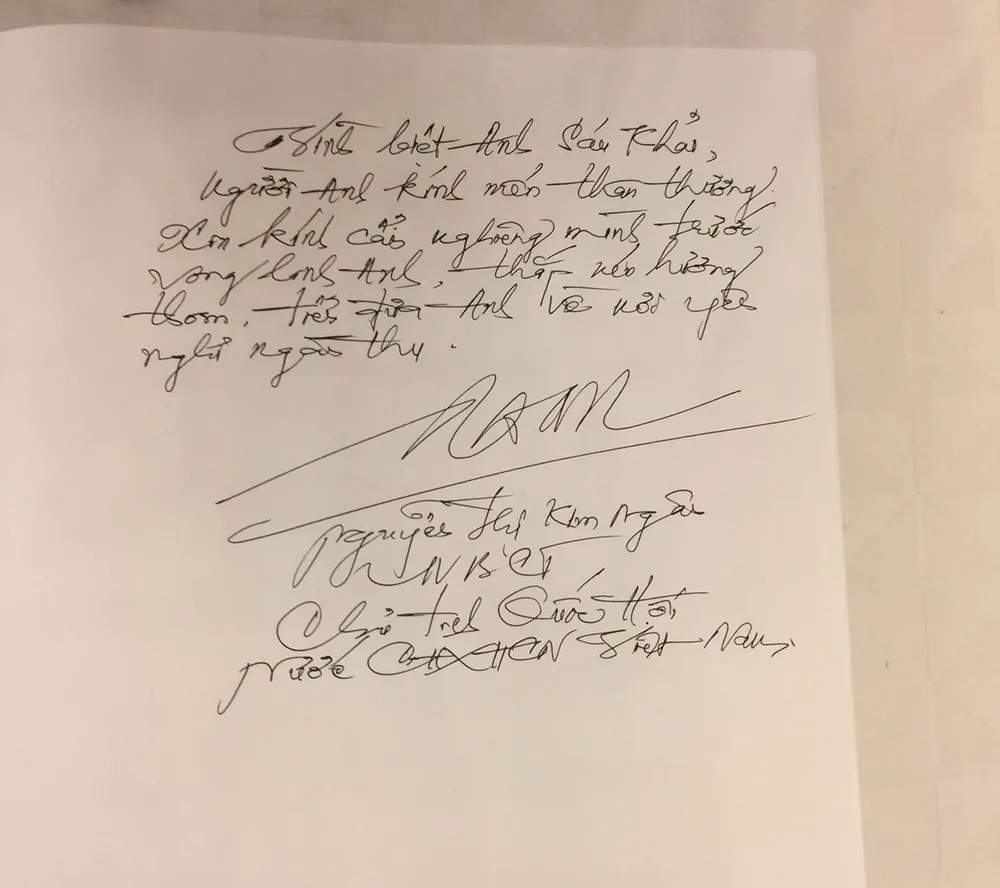 Vĩnh biệt Anh Sáu Khải,
Người Anh kính mến thân thương.
Xin kính cẩn nghiêng mình trước
vong linh Anh, thắp nén hương
thơm, tiễn đưa Anh về nơi yên
nghỉ ngàn thu.
Nguyễn Thị Kim Ngân
UVBCT
Chủ tịch Quốc Hội
Nước CHXHCN Việt Nam